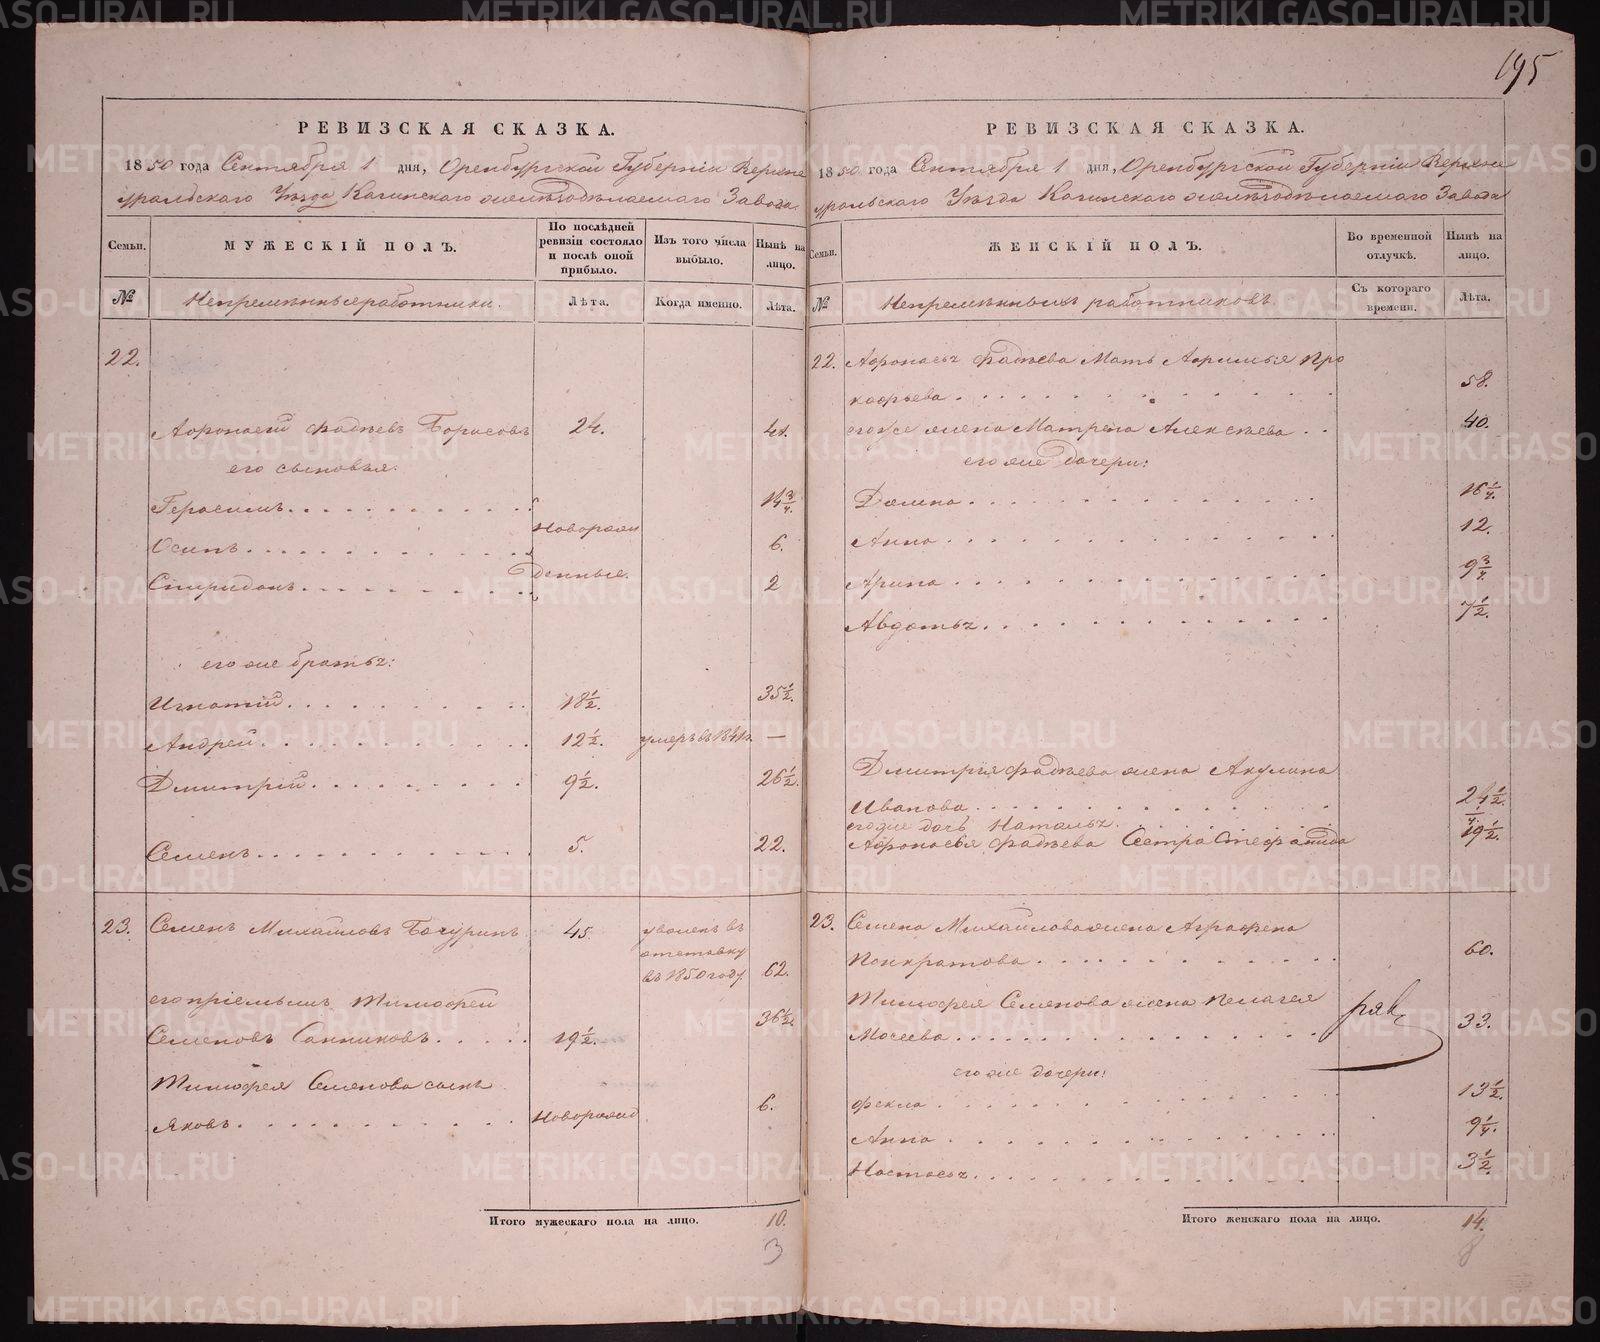 195
РЕВИЗСКАЯ СКАЗКА.
1850 года Сентября 1 дня, Оренбургской Губернiи Верхне
уральскаго Уѣзда Кагинскаго желѣзодѣлаемаго Завода
Семьи.
МУЖЕСКIЙ ПОЛЪ.
По послѣдней ревизiи состояло и послѣ оной прибыло.
Изъ того числа выбыло.
Нынѣ на лицо.
№
Непремѣнные работники.
Лѣта.
Когда именно.
Лѣта.
22.
Афонасей Фадѣевъ Борисовъ 24. 41.
его сыновья:
Герасимъ. 14 3/4.
Новорож
Осипъ. 6.
денные.
Спиридонъ. 2
его же братья:
Игнатiй. 18 1/2. 35 1/2.
Андрей. 12 1/2. умеръ въ 1841г. —
Дмитрiй. 9 1/2. 26 1/2.
Семенъ. 5. 22.
23. Семенъ Михайловъ Бачуринъ 45. уволенъ въ
отставку
въ 1850 году 62.
его прiемышъ Тимофей
36 1/2.
Семеновъ Санниковъ. 19 1/2.
Тимофея Семенова сынъ
Яковъ. Новорожд 6.
Итого мужескаго пола на лицо. 10.
3
РЕВИЗСКАЯ СКАЗКА.
1850 года Сентября 1 дня, Оренбургской Губернiи Верхне
уральскаго Уѣзда Кагинскаго желѣзодѣлаемаго Завода
Семьи.
ЖЕНСКIЙ ПОЛЪ.
Во временной отлучкѣ.
Нынѣ на лицо.
№
Непремѣнныхъ работниковъ.
Съ котораго времени.
Лѣта.
22. Афонасья Фадѣева Мать Афимья Про
кофьева. 58.
его же жена Матрена Алексѣева 40.
его же дочери:
Домна. 16 1/4.
Анна. 12.
Арина. 9 3/4.
Авдотья. 7 1/2.
Дмитрiя Фадѣева жена Акулина
Иванова. 24 1/2.
его же дочь Наталья. 1/4.
Афонасья Фадѣева Сестра Степанида 19 1/2.
23. Семена Михайлова жена Аграфена
Панкратова. 60.
Тимофея Семенова жена Пелагея
Мосеева. 33.
его же дочери:
Фекла. 13 1/2.
Анна. 9 1/4.
Настасья. 3 1/2.
Итого женскаго пола на лицо. 14.
8
METRIKI.GASO-URAL.RU